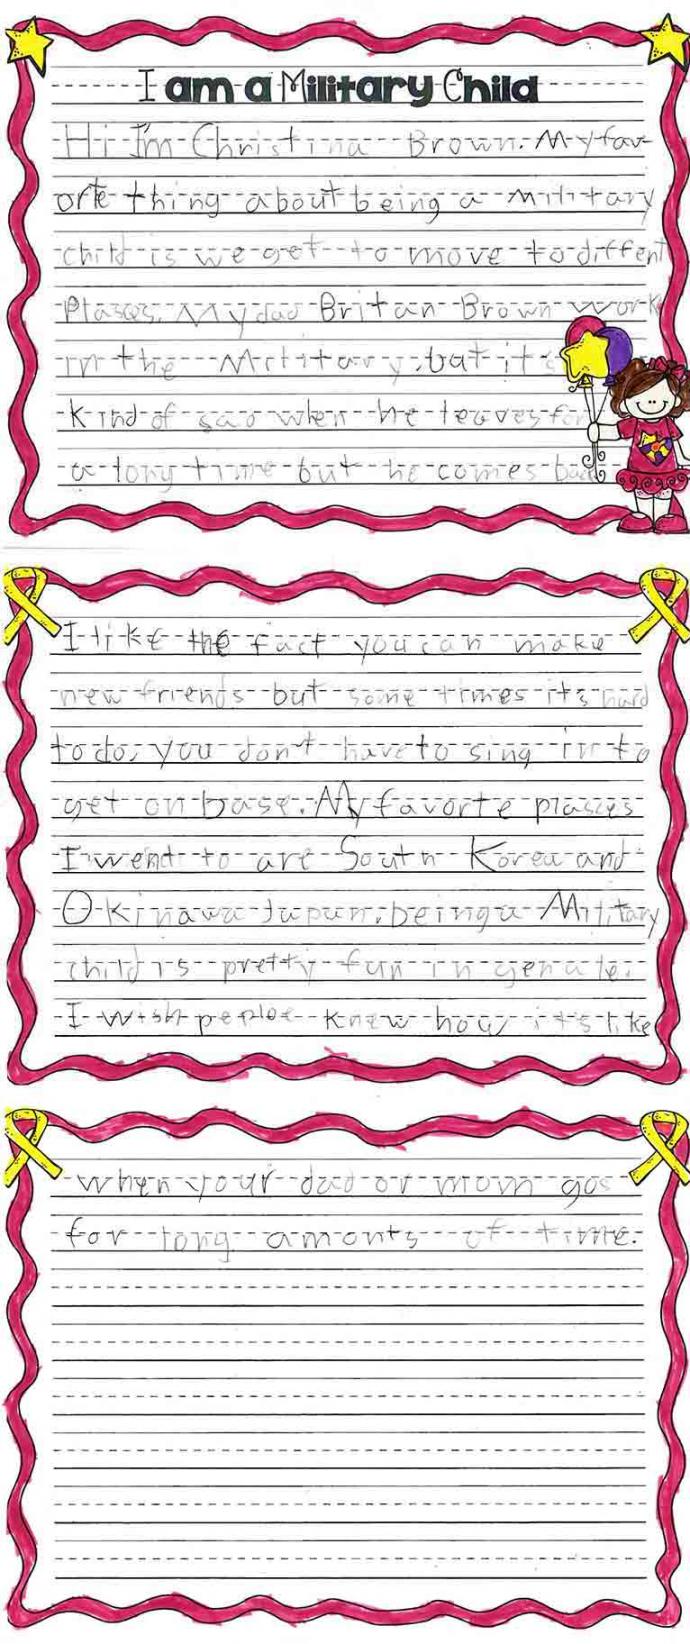 I am a Military Child
Hi I'm Christina Brown. My fav-
orte thing about being a military
child is we get to move to diffent
plases. My dad Britan Brown work
in the Military, but it's
kind of sad when he leaves for
a long time but he comes back
I like the fact you can make
new friends but some times it's hard
to do. you don't have to sing in to
get on base. My favorte plases
I wend to are South Korea and
Okinawa Japan. being a Military
child is pretty fun in genale.
I wish peploe knew how it's like
when your dad or mom gos
for long amonts of time.